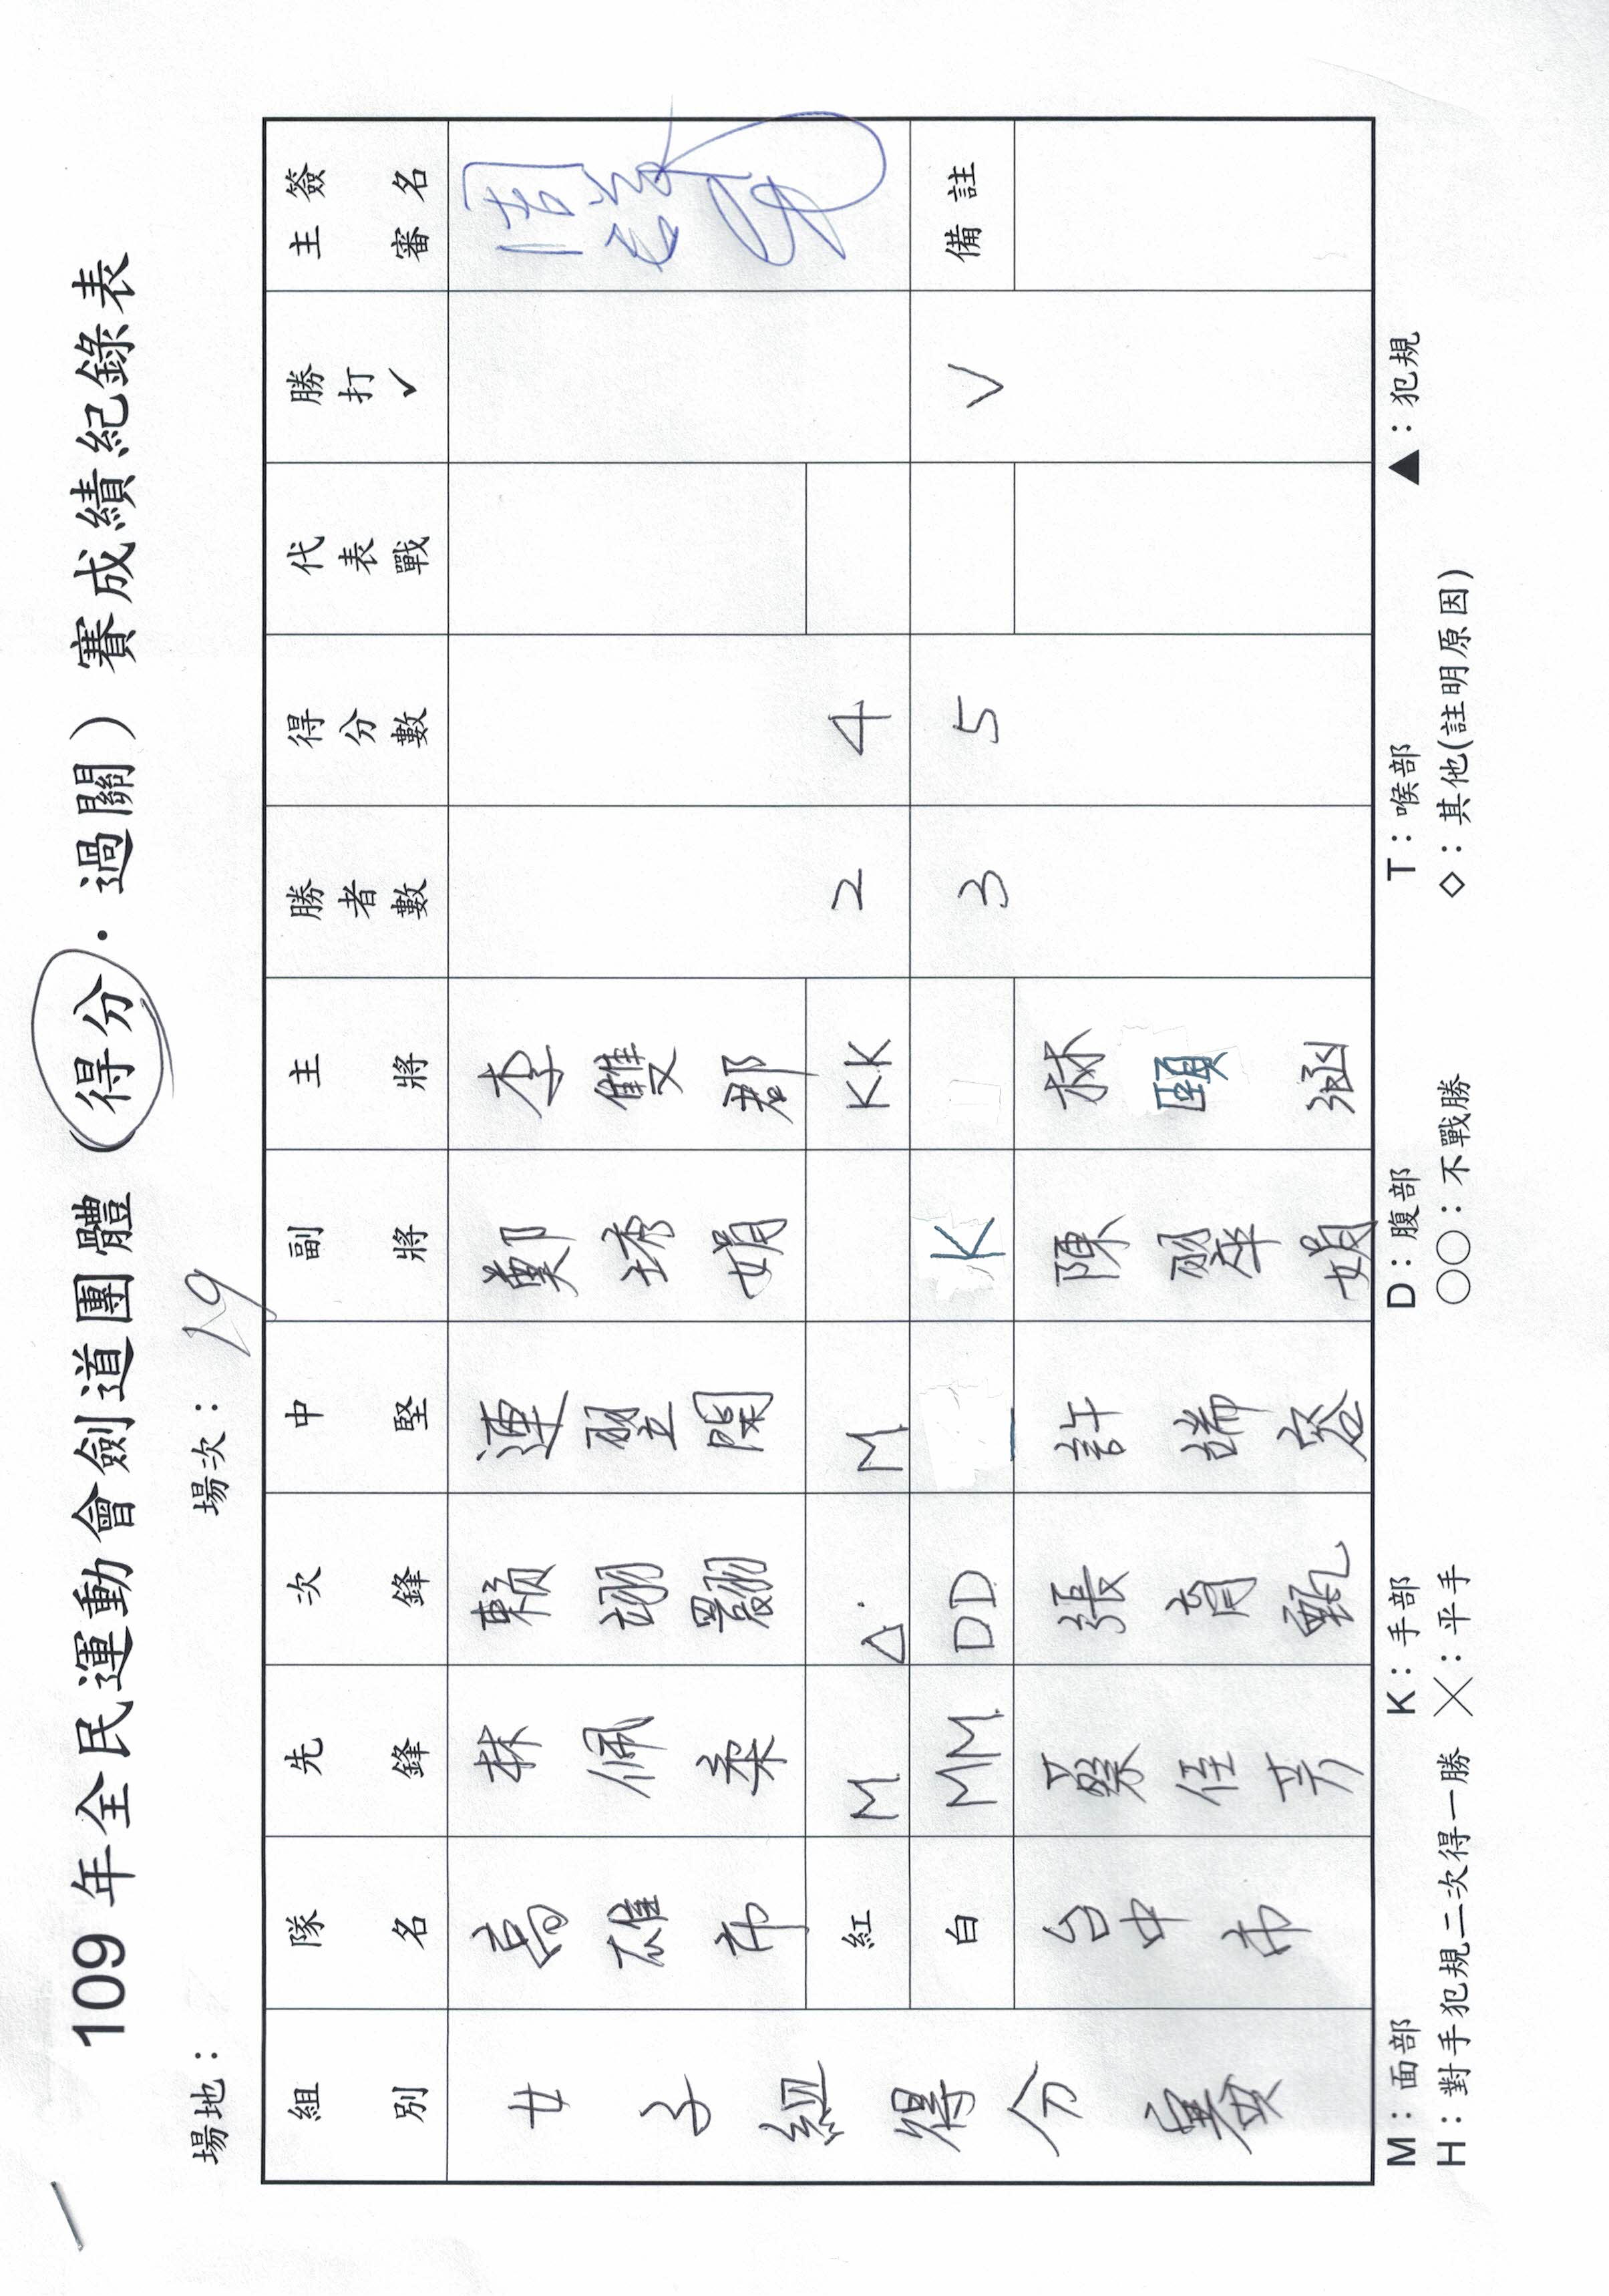 109年全民運動會劍道團體（得分．過關）賽成績紀錄表
場地： 場次：19
組別 隊名 先鋒 次鋒 中堅 副將 主將 勝者數 得分數 代表戰 勝打✓ 主審簽名
女子組得分賽 高雄市 林佩柔 賴翊翾 連翌閔 鄭琇娟 李雙郡
紅 M △ M KK 2 4
白 MM DD K 3 5 V 備註
台中市 蔡佳芳 張育甄 許端容 陳翠娟 林頤涵
M：面部 K：手部 D：腹部 T：喉部 ▲：犯規
H：對手犯規二次得一勝 ╳：平手 ○○：不戰勝 ◇：其他(註明原因)